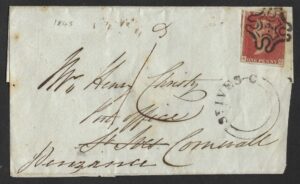 1843
Mr Henry Christy
Post Office
St Ives Cornwall
Penzance
ST IVES C
ONE PENNY